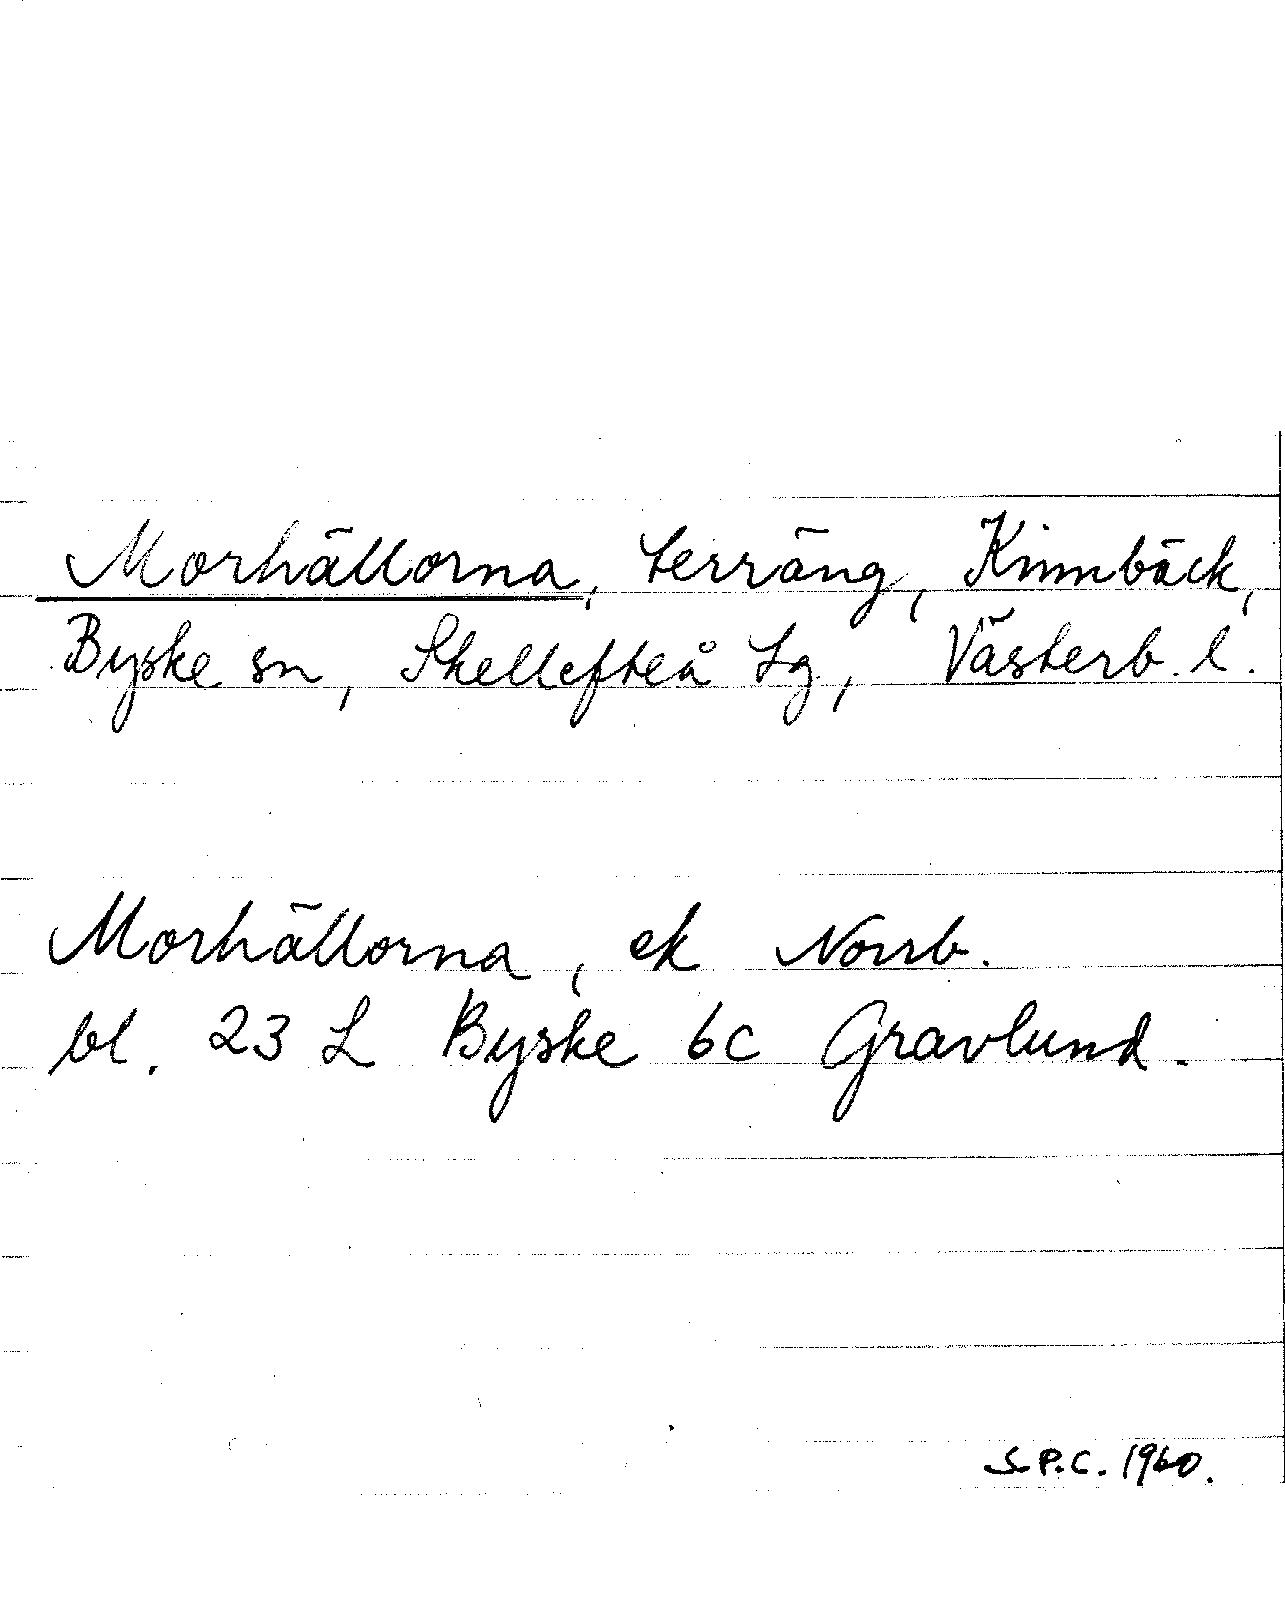 Morhällorna, terräng, Kinnbäck,
Byske sn, Skellefteå tg, Västerb. l.
Morhällorna, ek Norrb.
bl. 23 L Byske 6c Gravlund.
S.P.C. 1960.